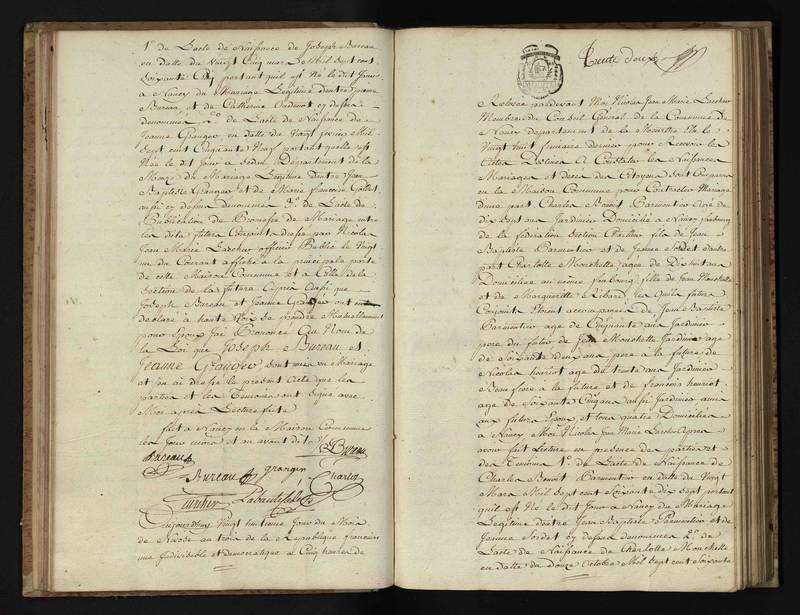 1° de Lacte de Naissance de Joseph Bureau
en datte du Vingt Cinq mars Mil Sept cent
Soixante portant quil est Né le dit Jour
a Nancy du Mariage Legitime dentre
Bureau et de Catherine cy dessus
denommés 2° de Lacte de Naissance de
Jeanne Granger en datte du Vingt fevrier Mil
Sept cent Cinquante Neuf portant quelle est
Née le dit Jour a Sedan Département de la
du Mariage Legitime dentre Jean
Baptiste Granger et de Marie françoise
aussi cy dessus denommés 3° de Lacte de
Publication de Promesse de Mariage entre
les dits futurs Conjoints dressé par Nicolas
Jean Marie Larcher officier Public le Vingt
un du Courant affiché a la principale porte
de cette Maison Commune et a Celle de la
Section de la future Après aussi que
Joseph Bureau et Jeanne Granger ont
declaré a haute Voix se prendre Mutuellement
pour Epoux Jai Prononcé Au Nom de
la Loi que Joseph Bureau et
Jeanne Granger sont unis en Mariage
et en ai dressé le present acte que les
parties et les temoins ont signé avec
Moi après Lecture faite
fait a Nancy en la Maison Commune
les Jour mois et an avant dits
Bureau
Bureau granger Charlot
Aujourdhuy Vingt huitieme Jour du Mois
de Nivose an trois de la Republique francaise
une Indivisible et democratique a Cinq heures de
Trente deux
Relevée pardevant Moi Nicolas Jean Marie Larcher
Membre du Conseil Général de la Commune de
Nancy departement de la Meurthe Elu le
Vingt huit frimaire dernier pour Recevoir les
Actes Destinés A Constater les Naissances
Mariages et décès des Citoyens sont Comparus
en la Maison Commune pour Contracter Mariage
dune part Charles Benoit Parmentier agé de
dix sept ans Jardinier Domicilié a Nancy faubourg
de la fédération Section fils de Jean
Baptiste Parmentier et de Jeanne Sordet dautre
part Charlotte Mouchette agée de Dix huit ans
Domiciliée au même faubourg fille de Jean Mouchette
et de Margueritte Robert les quels futurs
Conjoints étoient accompagnés de Jean Baptiste
Parmentier agé de Cinquante ans Jardinier
pere du futur de Jean Mouchette Jardinier agé
de Soixante deux ans pere a la future de
Nicolas henriot agé de trente ans Jardinier
Beau frere à la future et de francois henriot
agé de Soixante Cinq ans aussi Jardinier amis
aux futurs Epoux et tous quatre Domiciliés
a Nancy Moi Nicolas Jean Marie Larcher Après
avoir fait Lecture en presence des parties et
des temoins 1° de Lacte de Naissance de
Charles Benoit Parmentier en datte du Vingt
Mars Mil Sept cent Soixante dix Sept portant
quil est Né le dit Jour a Nancy du Mariage
Legitime dentre Jean Baptiste Parmentier et de
Jeanne Sordet cy dessus denommés 2° de
Lacte de Naissance de Charlotte Mouchette
en datte du Douze Octobre Mil Sept cent Soixante